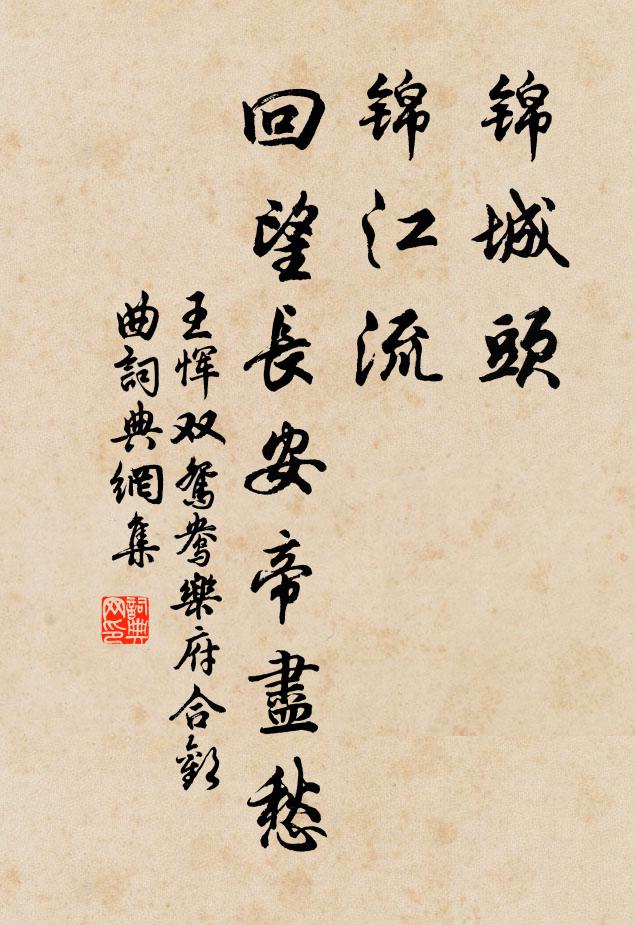 锦城頭
锦江流
回望長安帝盡愁
王恽双鴛鴦樂府合歡
曲詞典網集
詞典网印